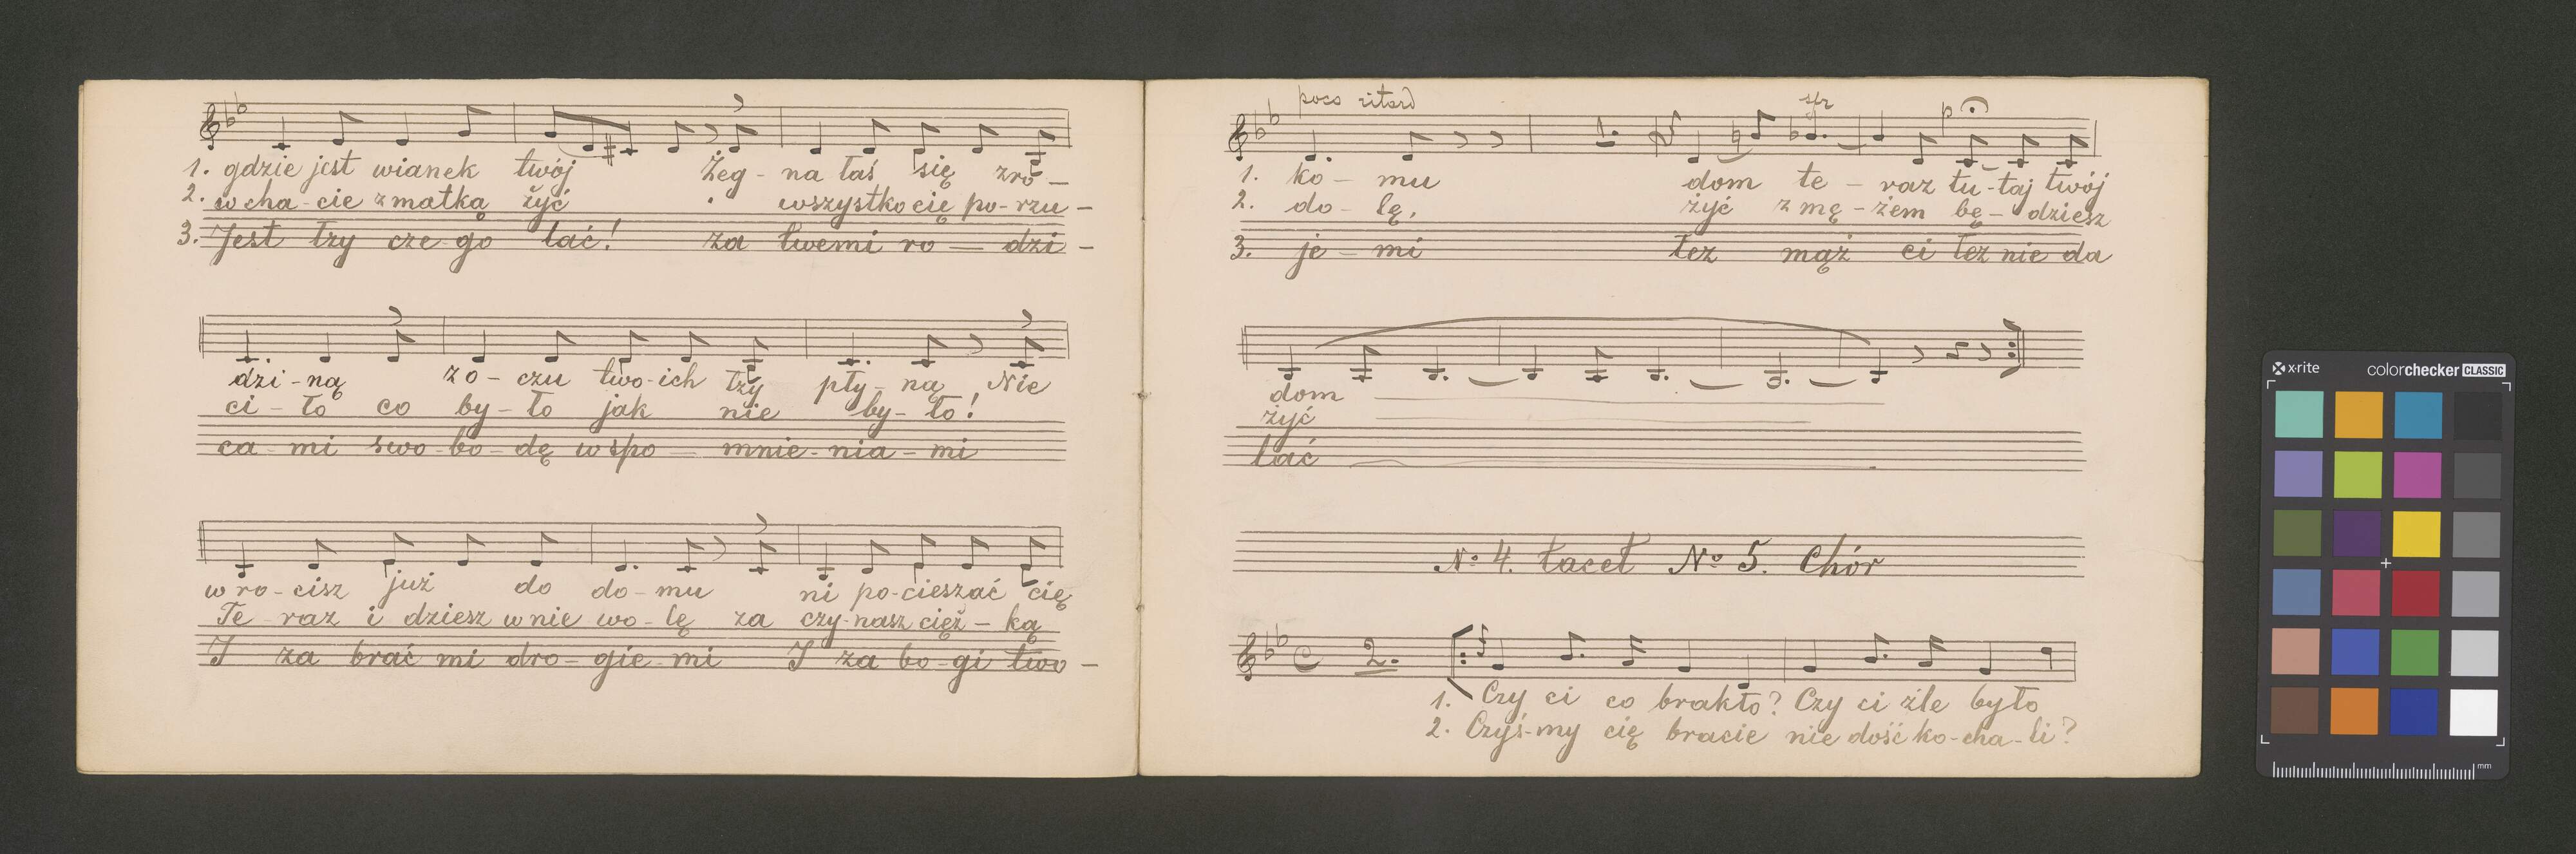 1. gdzie jest wianek twój Żeg - na łaś się zro -
2. w cha - cie z matką żyć wszystko cię po - rzu -
3. Jest łzy cze - go lać! za twemi ro - dzi -
dzi - ną z o - czu two - ich łzy pły - ną Nie
ci - ło co by - ło jak nie by - ło!
ca - mi swo - bo - dę wspo - mnie - nia - mi
w ro - cisz już do do - mu ni po - cieszać cię
Te - raz i dziesz w nie wo - lę za czy - nasz cięż - ką
I za brać mi dro - gie - mi I za bo - gi two -
poco ritard sfz p
1. ko - mu dom te - raz tu - taj twój
2. do - lę, żyć z mę - żem bę - dziesz
3. je - mi łez mąż ci łez nie da
dom
żyć
lać
No 4. tacet No 5. Chór
2.
1. Czy ci co brakło? Czy ci źle było
2. Czyś - my cię bracie nie dość ko - cha - li?
x-rite colorchecker CLASSIC
mm